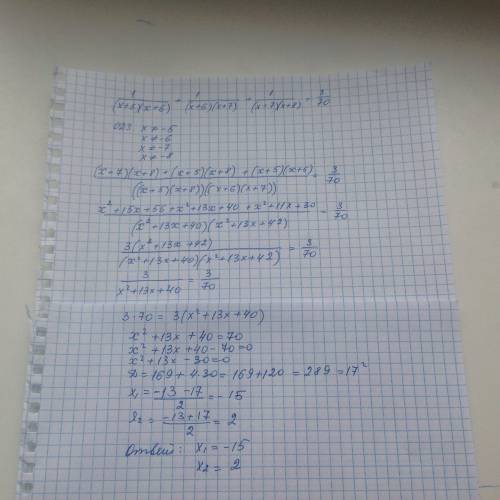 1/((x+5)(x+6)) + 1/((x+6)(x+7)) + 1/((x+7)(x+8)) = 3/70
ОДЗ x ≠ -5
x ≠ -6
x ≠ -7
x ≠ -8
((x+7)(x+8) + (x+5)(x+8) + (x+5)(x+6))/((x+5)(x+8))((x+6)(x+7)) = 3/70
(x²+15x+56+x²+13x+40+x²+11x+30)/((x²+13x+40)(x²+13x+42)) = 3/70
3(x²+13x+42)/((x²+13x+40)(x²+13x+42)) = 3/70
3/(x²+13x+40) = 3/70
3·70 = 3(x²+13x+40)
x²+13x+40=70
x²+13x+40-70=0
x²+13x-30=0
D=169+4·30=169+120=289=17²
x₁=(-13-17)/2=-15
x₂=(-13+17)/2=2
Ответ: x₁=-15
x₂=2